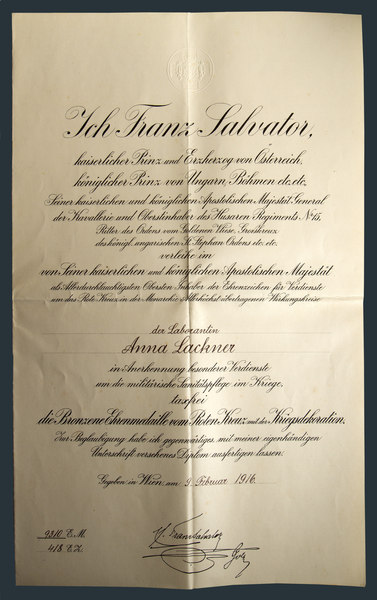 Ich Franz Salvator,
kaiserlicher Prinz und Erzherzog von Österreich,
königlicher Prinz von Ungarn, Böhmen etc. etc.
Seiner kaiserlichen und königlichen Apostolischen Majestät General
der Kavallerie und Oberstinhaber des Husaren Regiments No 15,
Ritter des Ordens vom Goldenen Vliese, Grosskreuz
des königl. ungarischen St. Stephan Ordens etc. etc.
verleihe im
von Seiner kaiserlichen und königlichen Apostolischen Majestät
als Allerdurchlauchtigsten Obersten Inhaber der Ehrenzeichen für Verdienste
um das Rote Kreuz, in der Monarchie Allerhöchst übertragenen Wirkungskreise
der Laborantin
Anna Lackner
in Anerkennung besonderer Verdienste
um die militärische Sanitätspflege im Kriege,
taxfrei
die Bronzene Ehrenmedaille vom Roten Kreuz mit der Kriegsdekoration.
Zur Beglaubigung habe ich gegenwärtiges, mit meiner eigenhändigen
Unterschrift versehenes Diplom ausfertigen lassen.
Gegeben in Wien, am 9. Februar 1916.
9310 E.M.
418 E.Z.
Franz Salvator